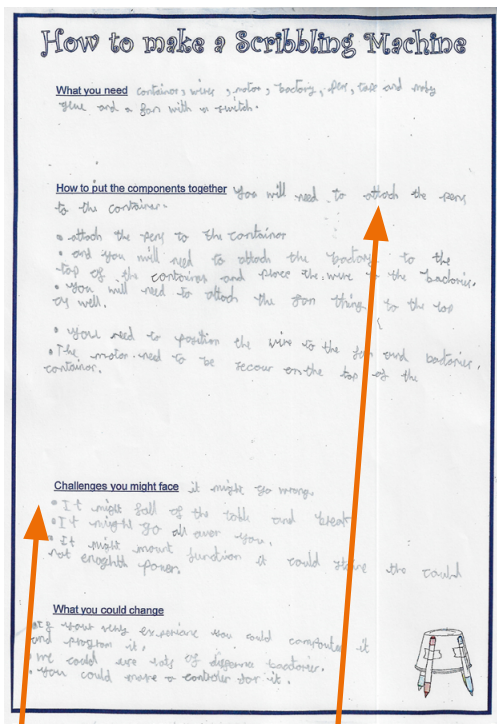 How to make a Scribbling Machine
What you need container, wire, motor, bactory, pen, tape and
glue and a fan with a switch.
How to put the components together You will need to attach the pens
to the container.
• attach the pens to the container
• and you will need to attach the bactory to the
top of the container and the wire the bactories.
• You will need to attach the fan thing to the top
as well.
• You need to position the wire to the fan and bactories.
• The motor need to be secour on the top of the
container.
Challenges you might face it might go wrong
• It might fall of the table and break
• It might go all over you.
• It might function it could the could
not power.
What you could change
your very you could it
and program it.
• We could use lots of bactories.
• You could make a for it.